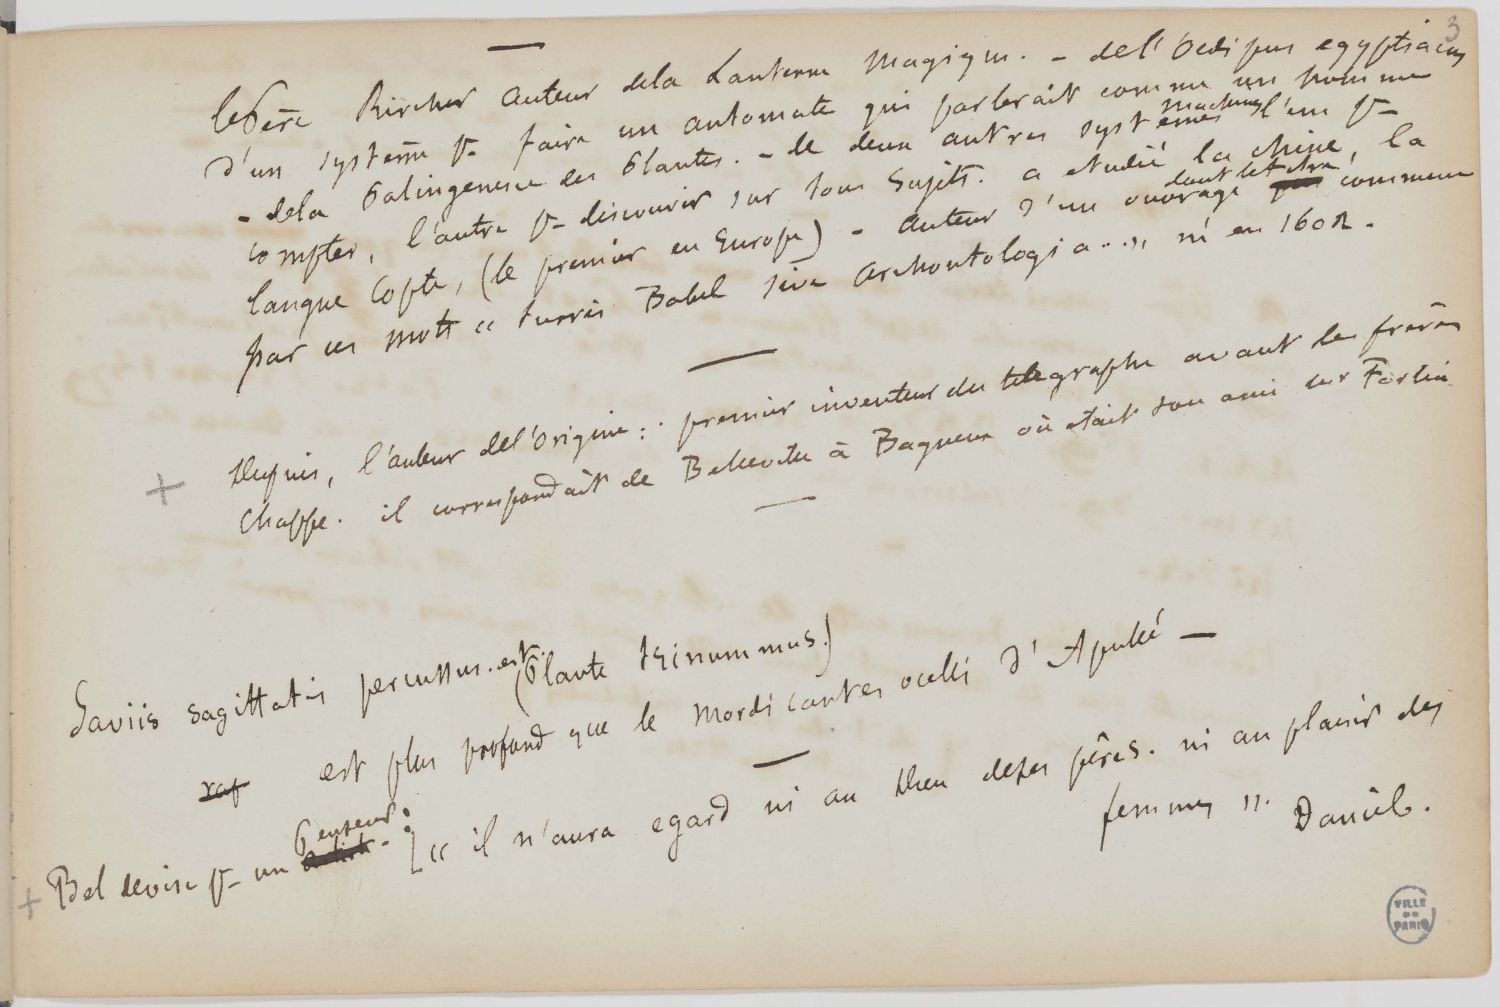 3
le Père Kircher auteur de la Lanterne Magique. - de l'Oedipus egyptiacus
d'un système pr faire un automate qui parlerait comme un homme
- de la Palingenesie des Plantes. - de deux autres systemes machines l'une pr
compter, l'autre pr discourir sur tous sujets. a etudié la chine, la
langue Copte, (le premier en Europe) - auteur d'un ouvrage dont le titre commence
par ces mots « turris Babel sive Archontologia...», né en 1602.
Dupuis, l'auteur de l'Origine: premier inventeur du telegraphe avant les frères
Chappe. il correspondait de Belleville à Bagneux où etait son ami sur Fortin
Saviis sagittatis percussus est.
(Plaute trinummus.)
est plus profond que le Mordicantes ocelli d'Apulée —
Bel devise pr un Penseur: [« il n'aura egard ni au Dieu de ses pères. ni au plaisir des
femmes ». Daniel.
VILLE
DE
PARIS